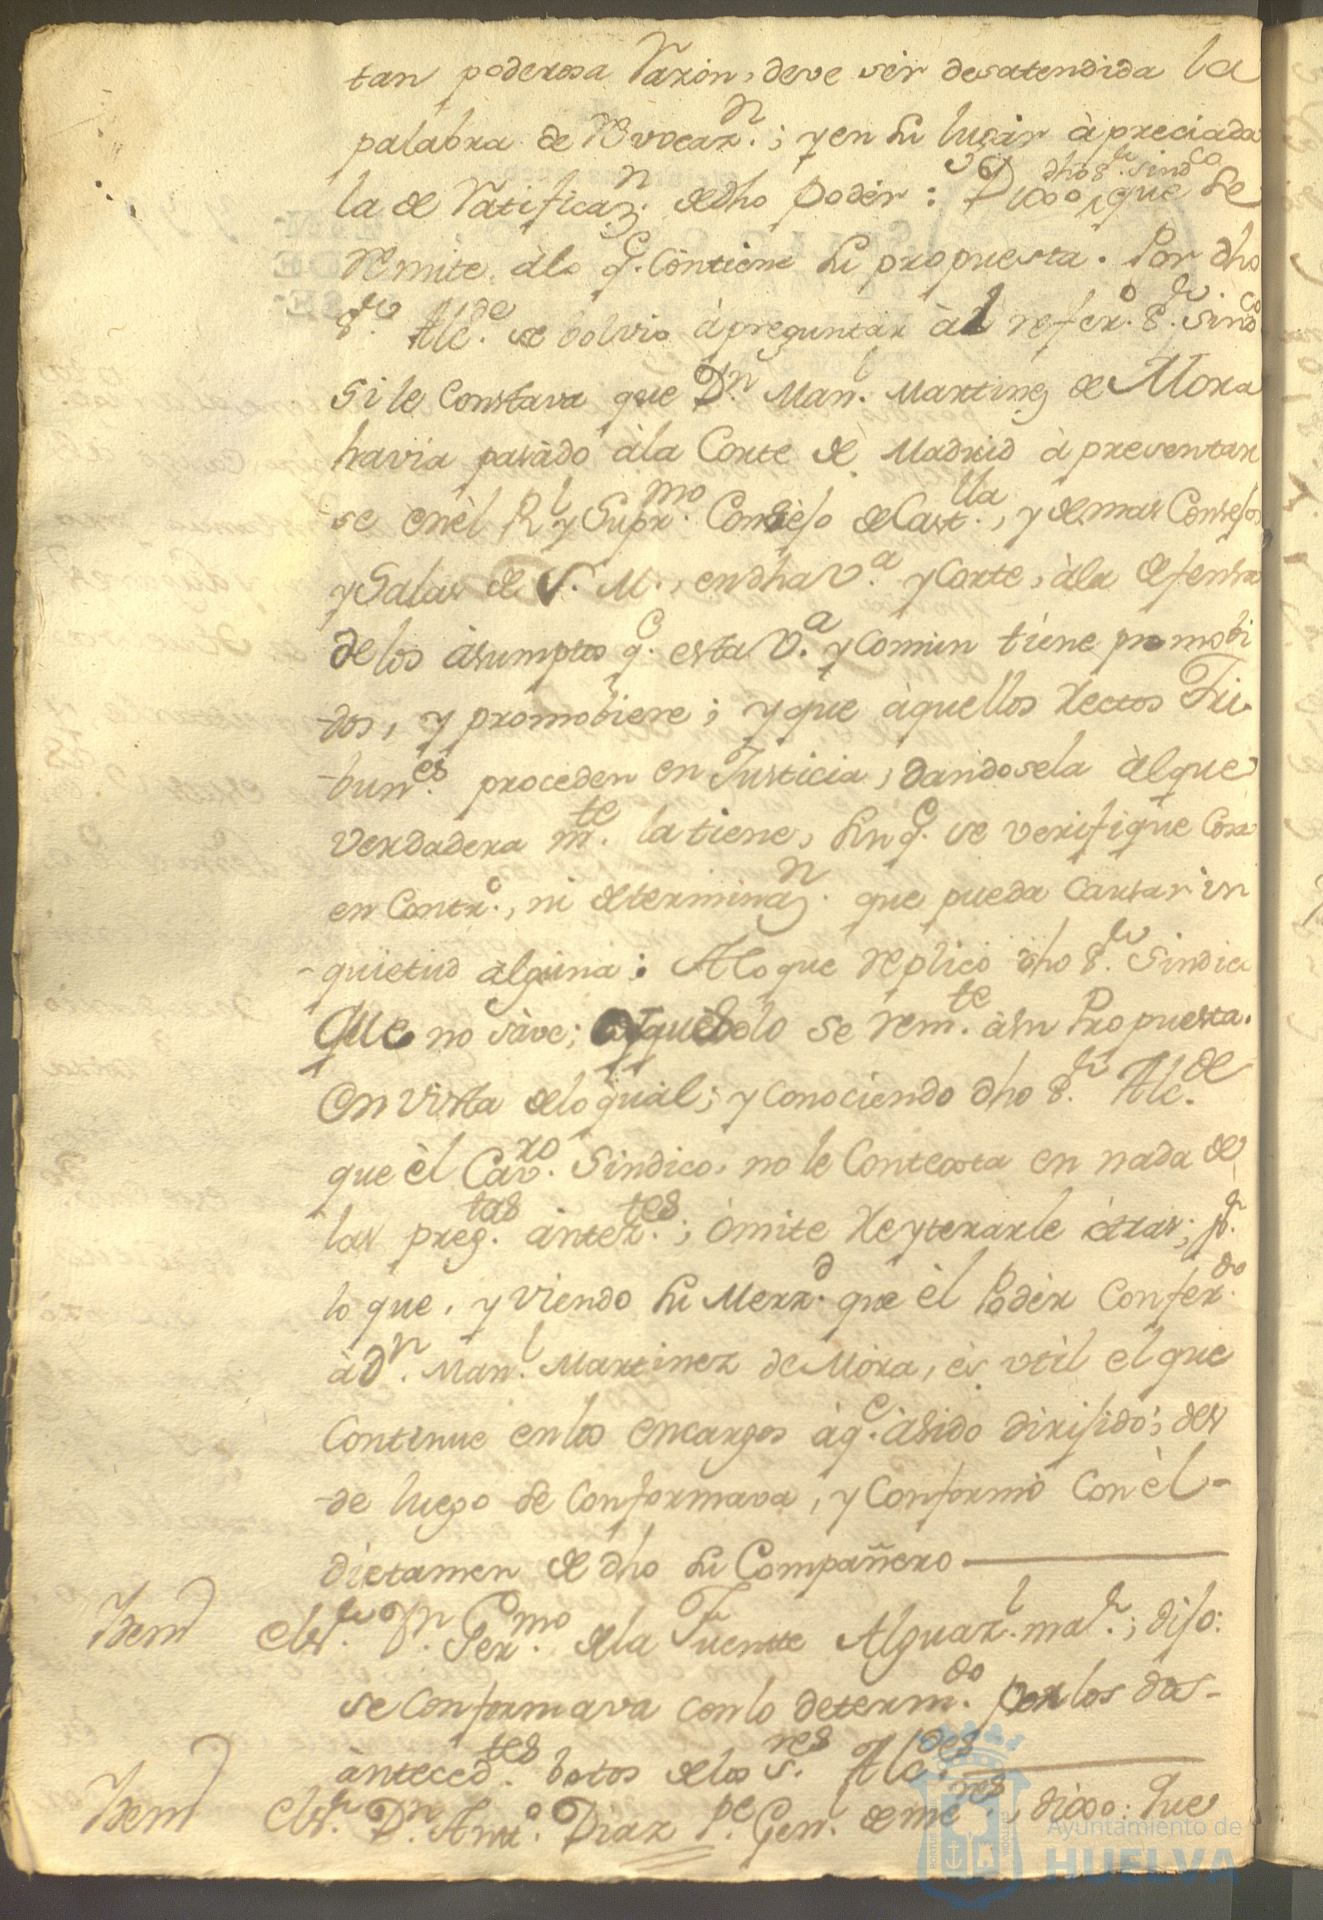 tan poderosa Razón, deve sér desatendida la
palabra de Revocazn.; y en su lugár àpreciada
la de Ratificazn. de dho Podér: Y Dixo dho Sr. Sindco que se
remite àlo qe. Contiene su propuesta. Por dho
Sr. Alcde. se bolvio à preguntar àl referdo. Sr. Sindco
Si le Constava que Dn. Manl. Martinez de Mora
havia pasàdo àla Corte de Madrid à presentar
se enèl Rl. y Suprmo. Consejo de Castlla., y demas Consejos
y Salas de S. M., en dha Va. y Corte, àla defensa
de los àsumptos qe. esta Va. y Comùn tiene promobi
-dos, y promobiere; y que àquellos Rectos Tri
-bunes. proceden en Justicia, dandosela àlque
verdadera mte. la tiene, sin qe. se verifique Cosa
en Contro., ni determinazn. que pueda Causar in
-quietud alguna: A lo que replicó dho Sr. Sindico
Que no sàve; se remte. àsu Propuesta.
En vista delo qual; y Conociendo dho Sr. Alcde.
que èl Cavro. Sindico, no le Contexta en nada de
las pregtas. àntertes.; òmite Reyterarle òtras; pr.
lo que, y viendo su Merzd. que èl Podèr Conferdo.
à Dn. Manl. Martinez de Mòra, ès vtìl el que
Continue en los encargos àqe. àsido dirijido; des
-de luego se Conformava, y Conformò Con èl-
dictamen de dho su Compañero
Ittem El Sr. Dn. Germo. dela Fuente Alguazl. mar.; dijo:
se Conformava con lo determdo. por los dos-
àntecedtes. botos delos Sres. Alcdes.
Ittem El Sr. Dn. Anto. Diaz Pe. Genl. de menres., dixo: Que
Ayuntamiento de
HUELVA